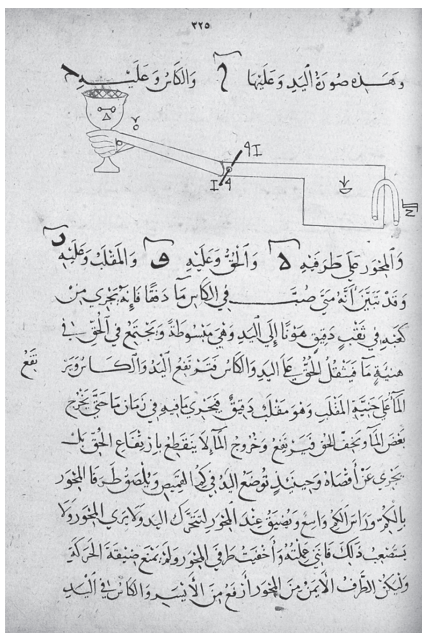 ٣٢٥
وهذه صورة اليد وعليها والكاس وعليه
والمحور على طرفيه والحق وعليه والمقلب وعليه
وقد تبين أنه متى صب في الكاس ما دفقا فإنه يجري من
كعبه في ثقب دقيق هونا إلى اليد وهي مبسوطة ويجتمع في الحق في
هنية ما يثقل الحق على اليد والكاس فترتفع اليد والكاس
تفع
الما على جنبة المقلب وهو مقلب دقيق فيجري ما فيه في زمان ما حتى يخرج
بعض الما ويخف الحق فيرتفع وخروج الما لا ينقطع بارتفاع الحق بل
يجري عن أقصاه وحينئذ توضع اليد في كم القميص ويلصق طرفا المحور
بالكم وراس الكم واسع ويضيق عند المحور لتتحرك اليد ولا يرى المحور ولا
يستصعب ذلك فانني عملته وأخفيت طرفي المحور ولم يمنع ضيقه الحركة
وليكن الطرف الأيمن من المحور أرفع من الأيسر والكاس في اليد